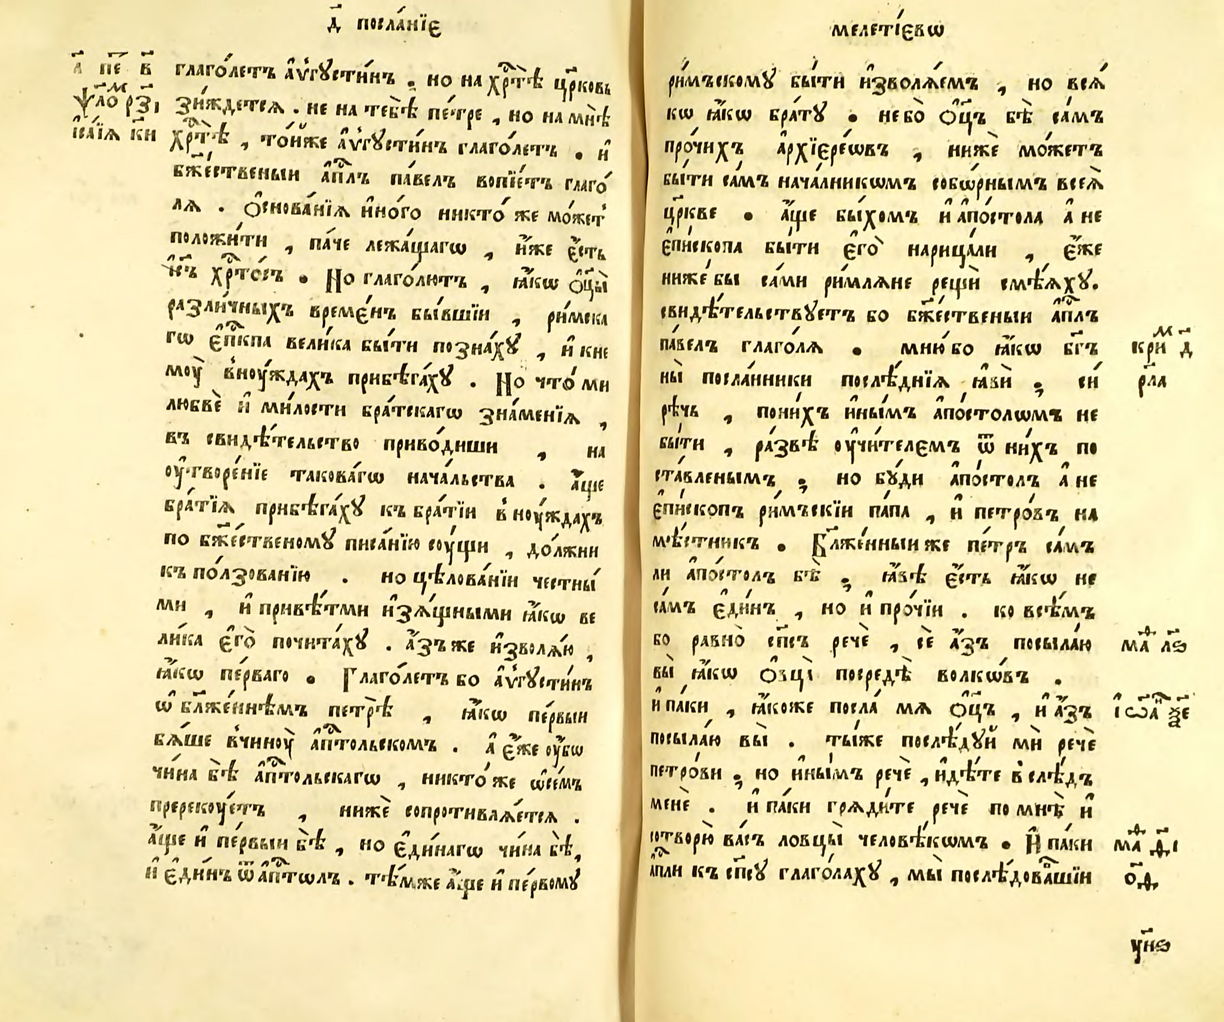 д҃ посла́нїе
а҃ пе҃ в҃
ѱало рз҃і
і҆са́їѧ ки
глаго́летъ а҆ѵгꙋсти́нъ . но на хр҃тѣ̀ цр҃ковь
зи́ждетсѧ . не на тебѣ̀ пе́тре , но на мнѣ̀
хр҃тѣ̀ , то́йже а҆ѵгꙋсти́нъ глаго́летъ . и҆
бж҃ественыи а҆п҃лъ па́велъ вопїе́тъ глаго́
лѧ . Ѻ҆снова́нїѧ и҆но́го никто́ же мо́жетъ
положи́ти , па́че лежа́щагѡ , и҆́же є҆́сть
і҆с҃ъ хр҃то́съ . Но глаго́лютъ , ꙗ҆́кѡ ѻ҆ц҃ы̀
разли́чныхъ време́нъ бы́вшїи , ри́мска
гѡ є҆п҃кпа вели́ка бы́ти позна́хꙋ , и҆ к не
моу̀ в ноу́ждахъ прибѣга́хꙋ . Но что́ ми
любвѐ и҆ ми́лости бра́тскагѡ зна́менїѧ ,
въ свидѣ́тельство приво́диши , на
оу҆творе́нїе такова́гѡ нача́льства . а҆́ще
бра́тїѧ прибѣга́хꙋ къ бра́тїи в ноу́ждахъ
по бж҃е́ственомꙋ писа́нїю соу́щи , до́лжни
къ по́лзованїю . но цѣлова́нїи честны́
ми , и҆ привѣ́тми и҆зѧ́щными ꙗ҆́кѡ ве
ли́ка є҆го̀ почита́хꙋ . а҆́зъ же и҆зволѧ́ю ,
ꙗ҆́кѡ пе́рваго . Глаго́летъ бо а҆ѵгꙋсти́нъ
ѡ҆ бл҃же́ннѣмъ петрѣ̀ , ꙗ҆́кѡ пе́рвыи
бѧ́ше в чиноу̀ а҆п҃тольскомъ . а҆ є҆́же оу҆́бѡ
чи́на бѣ̀ а҆п҃тольскагѡ , никто́ же ѡ҆ се́мъ
пререкоу́етъ , нижѐ сопротивлѧ́етсѧ .
а҆́ще и҆ пе́рвыи бѣ̀ , но є҆ди́нагѡ чи́на бѣ̀,
и҆ є҆ди́нъ ѿ а҆п҃тѡлъ . тѣ́мже а҆́ще и҆ пе́рвомꙋ
мелетїевѡ
ри́мъскомꙋ бы́ти и҆зволѧ́емъ , но всѧ́
кѡ ꙗ҆́кѡ бра́тꙋ . не бо̀ ѻ҆ц҃ъ бѣ̀ са́мъ
про́чихъ а҆рхїере́ѡвъ , нижѐ мо́жетъ
бы́ти са́мъ нача́лникѡмъ собѡ́рнымъ всеѧ̀
цр҃кве . а҆́ще бы́хомъ и҆ а҆по́стола а҆ не
є҆пи́скопа бы́ти є҆го̀ нарица́ли , є҆́же
ниже́ бы са́ми ри́млѧне рещѝ смѣ́ѧхꙋ.
свидѣ́тельствꙋетъ бо бж҃е́ственыи а҆п҃лъ
па́велъ глаго́лѧ . мню́ бо ꙗ҆́кѡ бг҃ъ
ны̀ посла́нники послѣ́днїѧ ꙗ҆вѝ ; си́
рѣчь , по ни́хъ и҆ны́мъ а҆по́столѡмъ не
бы́ти , ра́звѣ оу҆чи́телємъ ѿ ни́хъ по
ста́вленымъ ; но бꙋ́ди а҆по́столъ а҆ не
є҆пи́скопъ ри́мъскїи па́па , и҆ петро́въ на
мѣ́стникъ . Бл҃же́нныи же пе́тръ са́мъ
ли а҆по́столъ бѣ̀ ; ꙗ҆́вѣ є҆́сть ꙗ҆́кѡ не
са́мъ є҆ди́нъ , но и҆ про́чїи . ко всѣ́мъ
бо равно̀ сп҃съ речѐ , сѐ а҆́зъ посыла́ю
вы̀ ꙗ҆́кѡ ѻ҆́вцы̀ посредѣ̀ волкѡ́въ .
и҆ па́ки , ꙗ҆́коже посла́ мѧ ѻ҆ц҃ъ , и҆ а҆́зъ
посыла́ю вы̀ . ты́же послѣ́дꙋй мѝ речѐ
петро́ви ; но и҆ны́мъ речѐ , и҆дѣ́те в слѣ́дъ
менѐ . и҆ па́ки грѧди́те речѐ по мнѣ̀ и҆
сотворю̀ ва́съ ловцы̀ человѣ́кѡмъ . И҆ па́ки
а҆п҃ли къ сп҃сꙋ глаго́лахꙋ , мы̀ послѣ́довавшїи
кри҃ д҃
рл҃а
ма҃ лѳ҃
і҆ѡа҃
ма҃
о҃д
ун҃ѳ